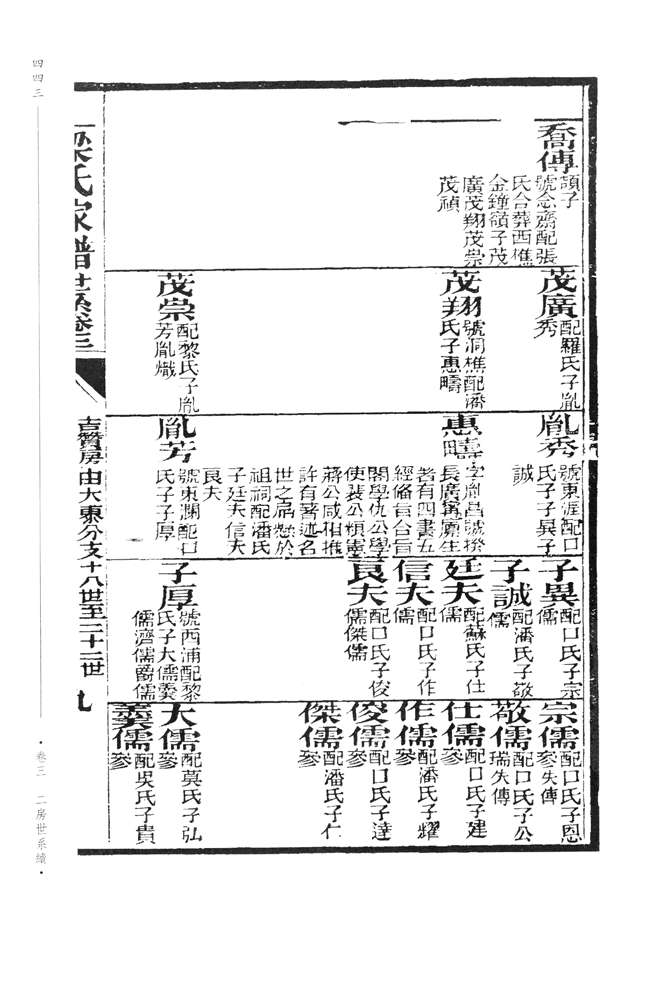 喬傳
頴子
號念齋配張
氏合葬西僬
金鐘嶺子茂
廣茂翔茂崇
茂禎
茂廣
配羅氏子胤
秀
茂翔
號洞樵配潘
氏子惠疇
茂崇
配黎氏子胤
芳胤熾
胤秀
號東渥配口
氏子子異子
誠
惠疇
字胤昌號
長廣
者有四書五
經條旨合旨
閣學仇公學
使裴公
蔣公咸相推
許有著述名
世之扁懸於
祖祠配潘氏
子廷夫信夫
良夫
胤芳
號東瀾配口
氏子子厚
子異
配口氏子宗
儒
子誠
配潘氏子敬
儒
廷夫
配蘇氏子仕
儒
信夫
配口氏子作
儒
良夫
配口氏子俊
儒傑儒
子厚
號西浦配黎
氏子大儒羹
儒濟儒爵儒
宗儒
配口氏子恩
參失傳
敬儒
配口氏子公
瑞失傳
仕儒
配口氏子建
參
作儒
配潘氏子耀
參
俊儒
配口氏子達
參
傑儒
配潘氏子仁
參
大儒
配莫氏子弘
參
羹儒
配吳氏子貴
參
梁氏家譜世系卷三
吉贊房由大東分支十八世至二十二世
九
四四三
·卷三 二房世系續·